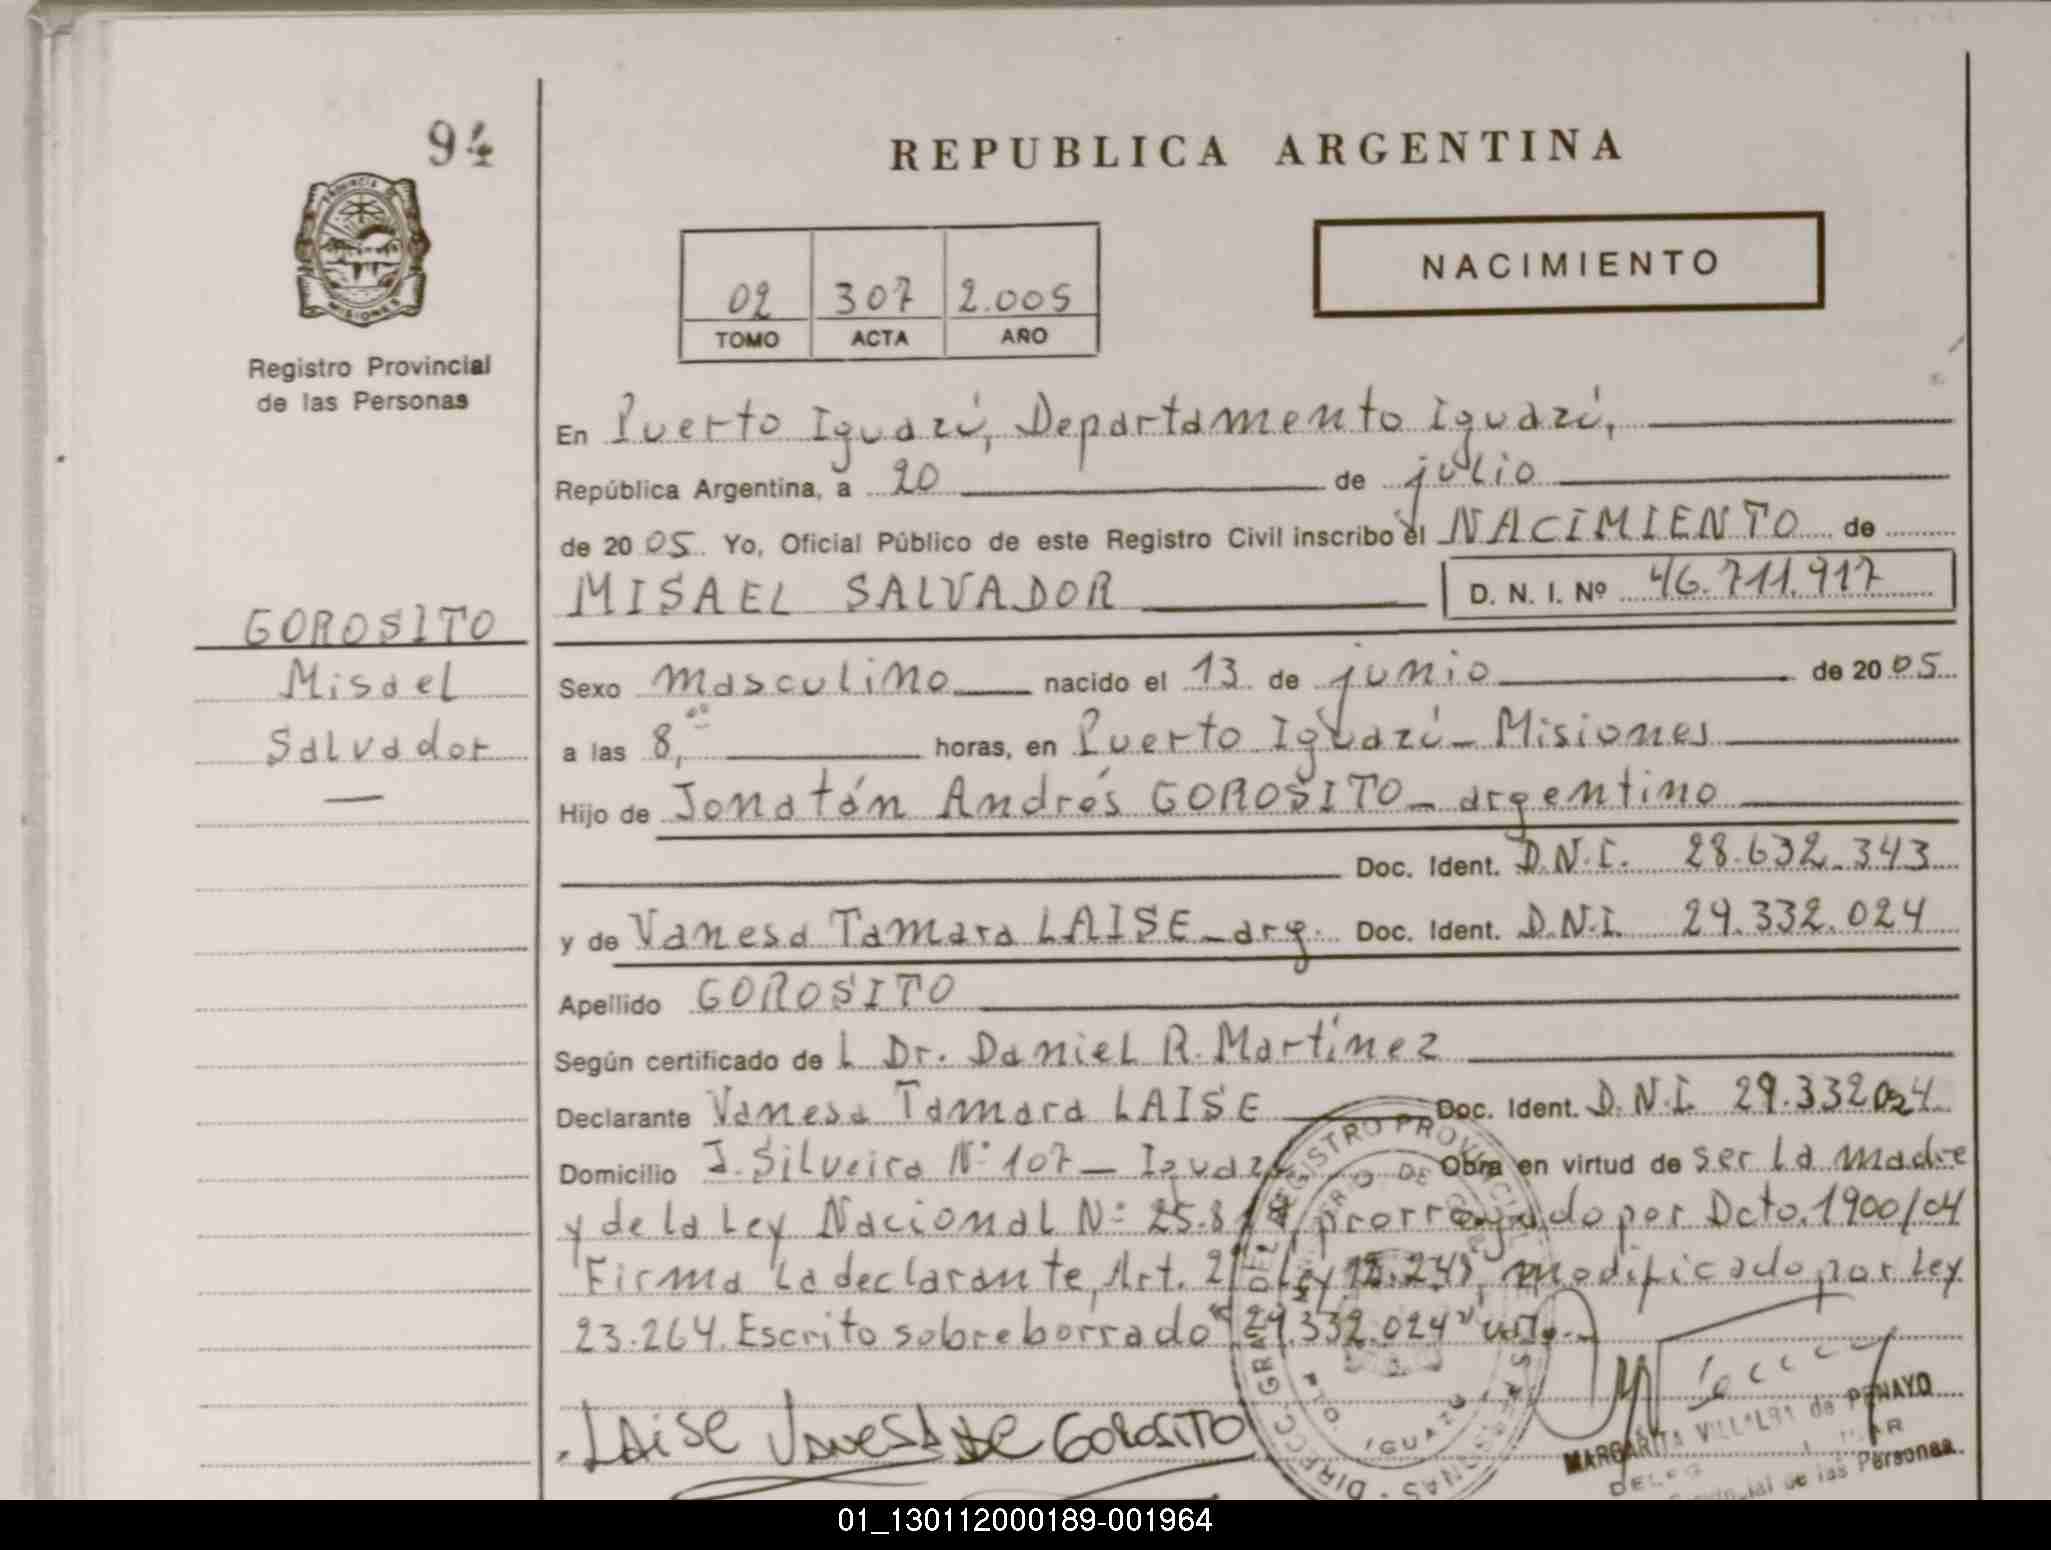 94
REPUBLICA ARGENTINA
PROVINCIA DE
MISIONES
Registro Provincial
de las Personas
02 307 2.005
TOMO ACTA AÑO
NACIMIENTO
En Puerto Iguazú, Departamento Iguazú,
República Argentina, a 20 de julio
de 2005. Yo, Oficial Público de este Registro Civil inscribo el NACIMIENTO de
MISAEL SALVADOR D. N. I. Nº 46.711.917
GOROSITO
Misael
Salvador
Sexo masculino nacido el 13 de junio de 2005
a las 8,00 horas, en Puerto Iguazú - Misiones
Hijo de Jonatán Andrés GOROSITO - argentino
Doc. Ident. D.N.I. 28.632.343
y de Vanesa Tamara LAISE - arg. Doc. Ident. D.N.I. 29.332.024
Apellido GOROSITO
Según certificado del Dr. Daniel R. Martínez
Declarante Vanesa Tamara LAISE Doc. Ident. D.N.I. 29.332024
Domicilio J. Silveira Nº 107 - Iguazú Obra en virtud de ser la madre
y de la Ley Nacional Nº prorrogado por Dcto. 1900/04
Firma la declarante, Art. Ley modificado por Ley
23.264. Escrito sobreborrado "29.332.024" vale.-
Laise Vanesa de Gorosito
DIRECC. GRAL. DEL REGISTRO PROVINCIAL DE LAS PERSONAS
PTO. IGUAZU
MARGARITA VILLALBA de PENAYO
Provincial de las Personas
01_130112000189-001964